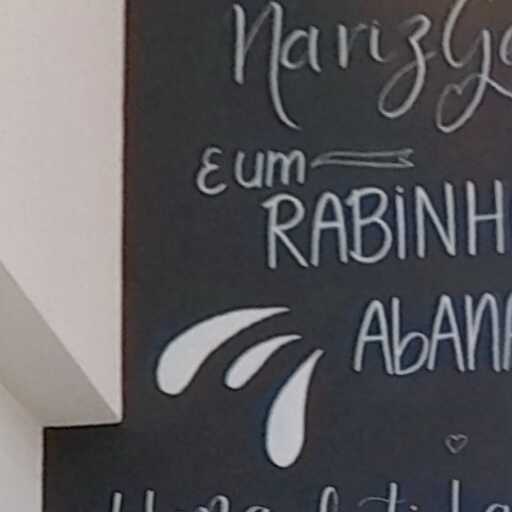 Nariz Ge
E um
RABINH
AbANA